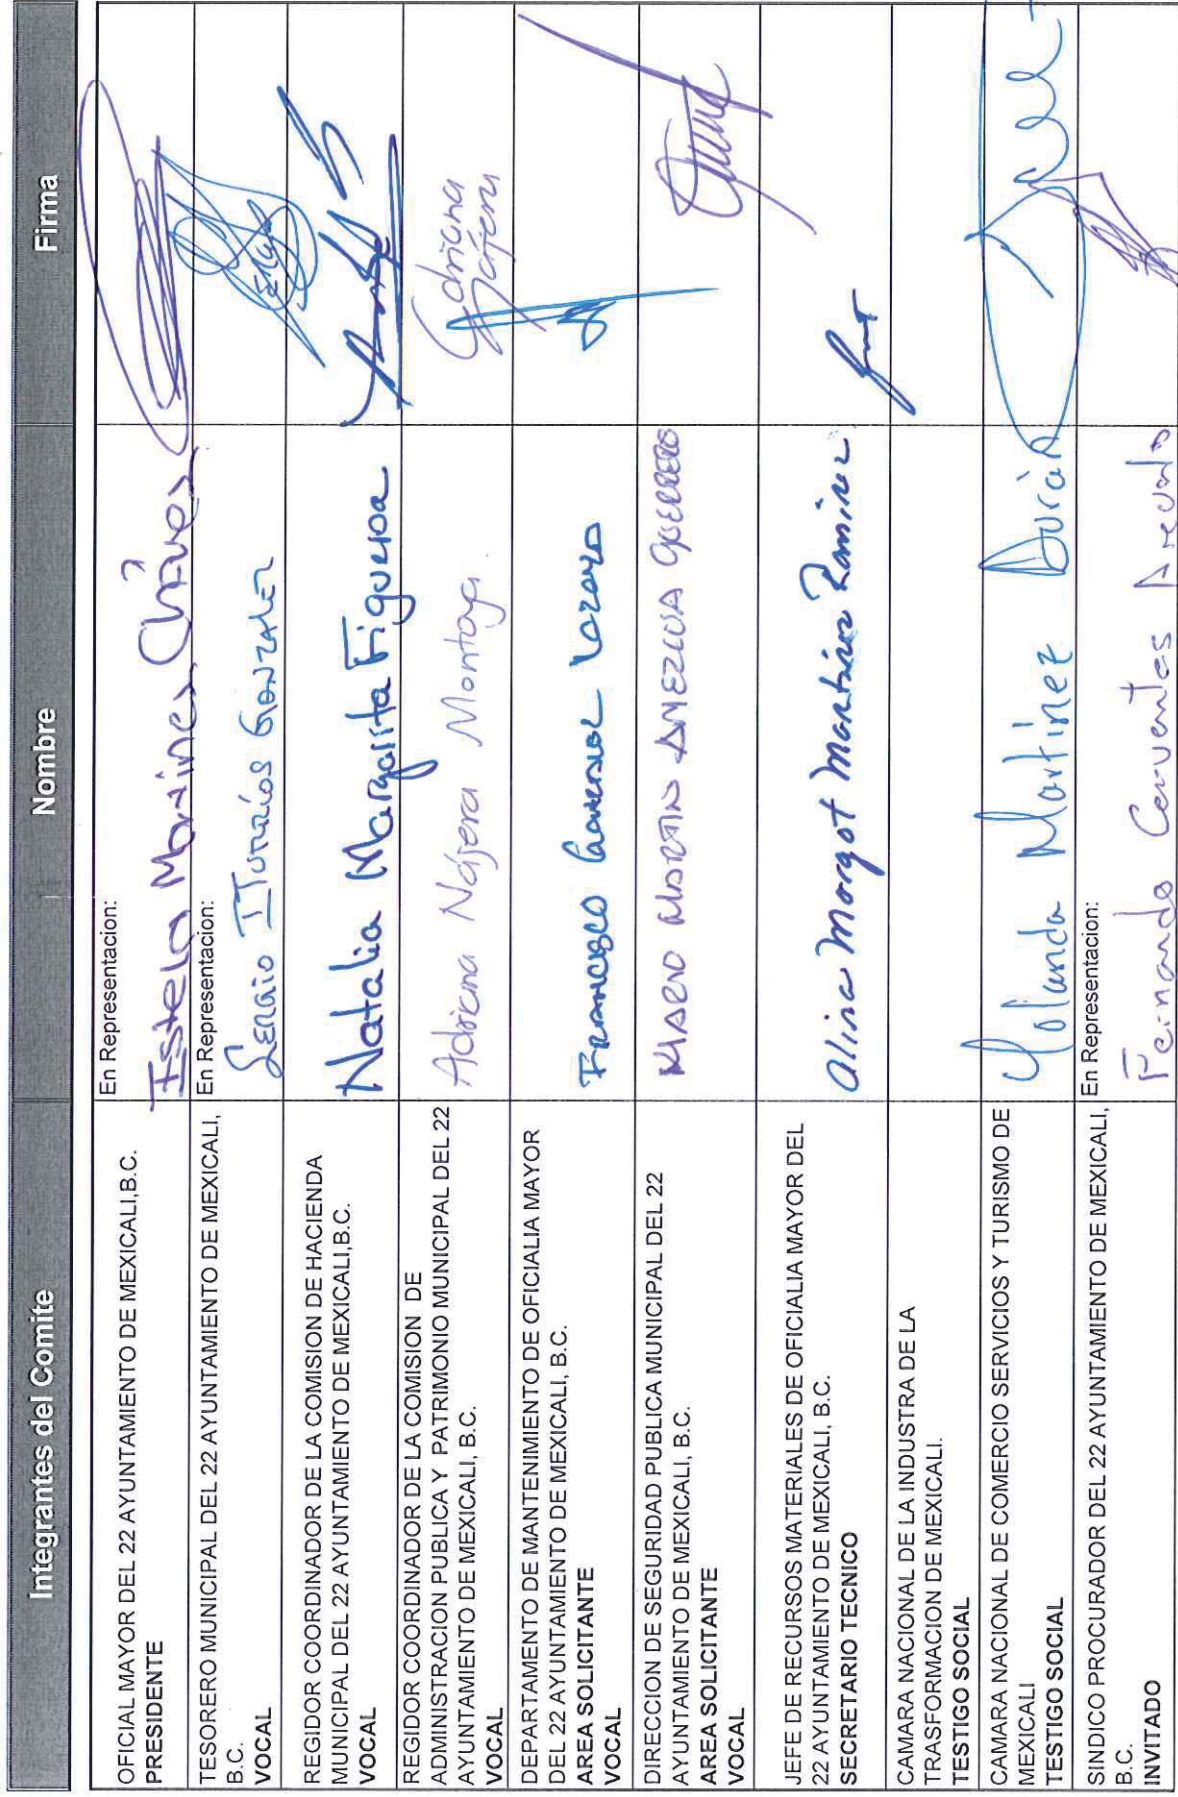 Integrantes del Comite Nombre Firma
OFICIAL MAYOR DEL 22 AYUNTAMIENTO DE MEXICALI,B.C.
PRESIDENTE
En Representacion:
Estela Martinez Chávez
TESORERO MUNICIPAL DEL 22 AYUNTAMIENTO DE MEXICALI,
B.C.
VOCAL
En Representacion:
Sergio González
REGIDOR COORDINADOR DE LA COMISION DE HACIENDA
MUNICIPAL DEL 22 AYUNTAMIENTO DE MEXICALI,B.C.
VOCAL
Natalia Margarita Figueroa
REGIDOR COORDINADOR DE LA COMISION DE
ADMINISTRACION PUBLICA Y PATRIMONIO MUNICIPAL DEL 22
AYUNTAMIENTO DE MEXICALI, B.C.
VOCAL
Adriana Nájera
Adriana
Nájera
DEPARTAMENTO DE MANTENIMIENTO DE OFICIALIA MAYOR
DEL 22 AYUNTAMIENTO DE MEXICALI, B.C.
AREA SOLICITANTE
VOCAL
FRANCISCO LOZANO
DIRECCION DE SEGURIDAD PUBLICA MUNICIPAL DEL 22
AYUNTAMIENTO DE MEXICALI, B.C.
AREA SOLICITANTE
VOCAL
MARIO MARTIN AMEZCUA GUERRERO
JEFE DE RECURSOS MATERIALES DE OFICIALIA MAYOR DEL
22 AYUNTAMIENTO DE MEXICALI, B.C.
SECRETARIO TECNICO
Alina Margot Martínez Ramirez
CAMARA NACIONAL DE LA INDUSTRA DE LA
TRASFORMACION DE MEXICALI.
TESTIGO SOCIAL
CAMARA NACIONAL DE COMERCIO SERVICIOS Y TURISMO DE
MEXICALI
TESTIGO SOCIAL
Yolanda Martínez Durán
SINDICO PROCURADOR DEL 22 AYUNTAMIENTO DE MEXICALI,
B.C.
INVITADO
En Representacion:
Fernando Cervantes Arevalo